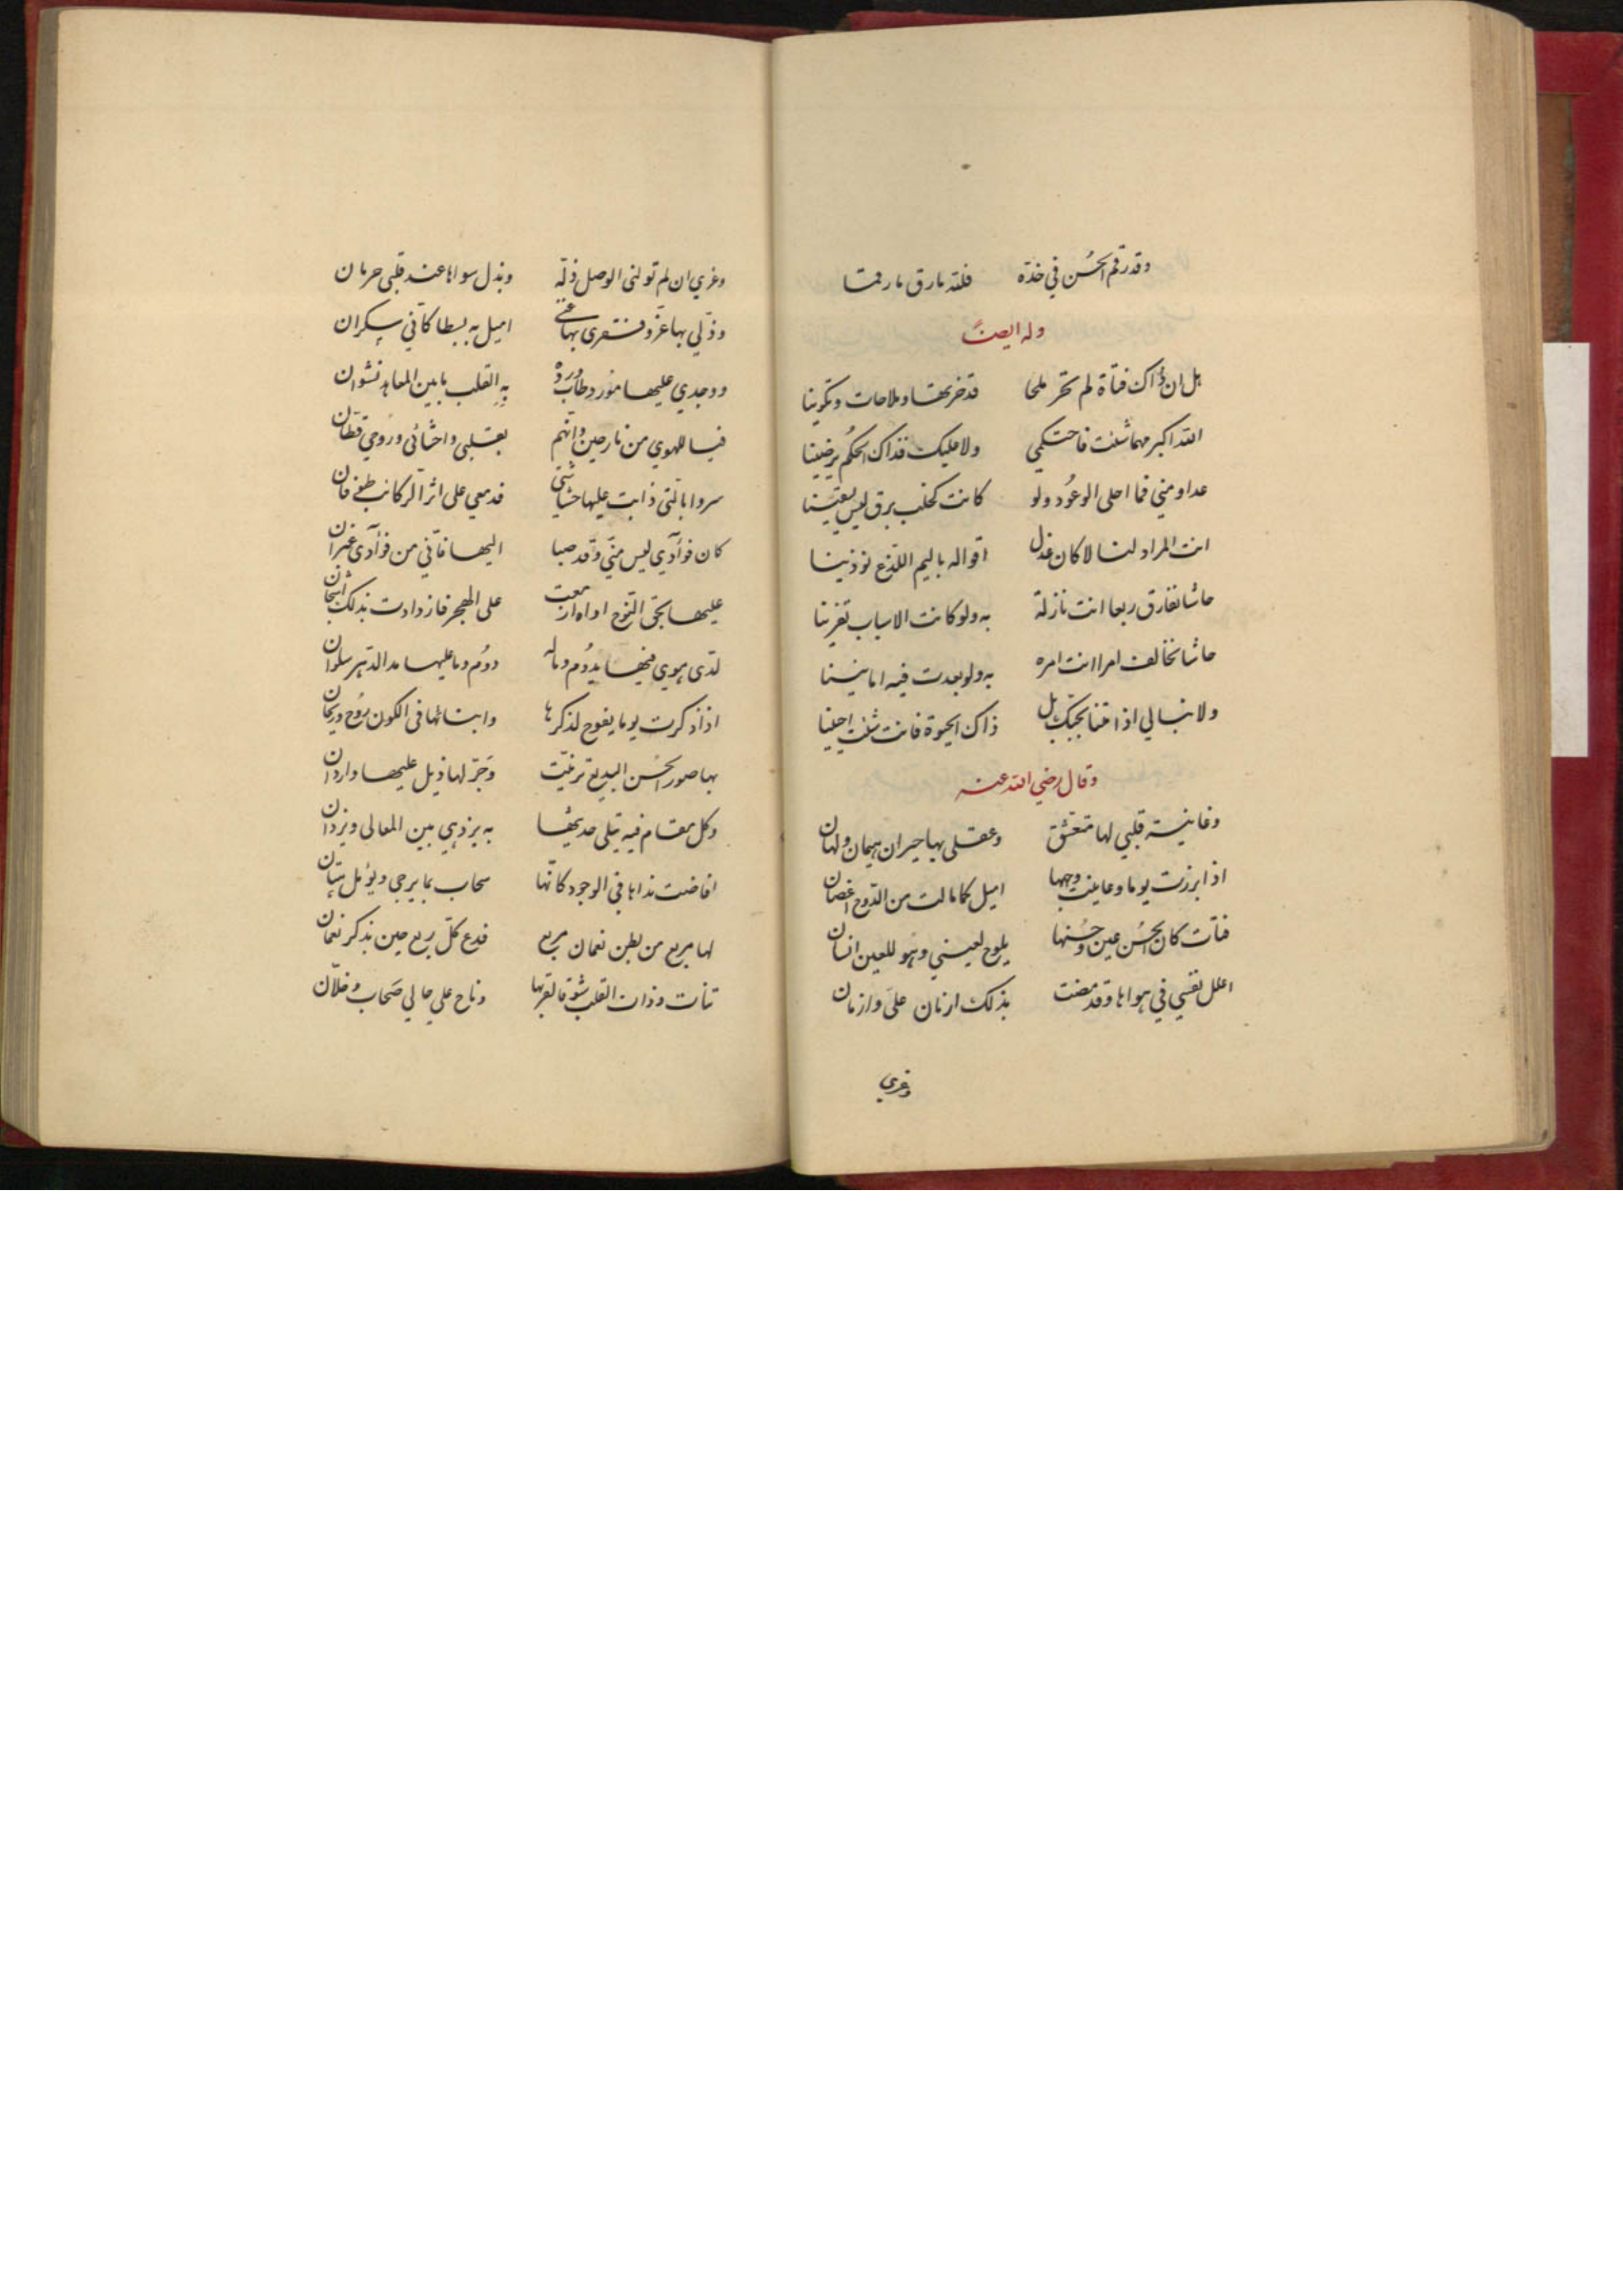 وقد رقم الحُسن في خدّه فللّه ما رق ما رقمتا
وله ايضاً
هل ان ذاك فتاة لم تحز ملحا قد خزتها وملاحات وتكوينا
الله اكبر مهما شئت فاحتكمي ولا عليك فذاك الحكم يرضينا
عدا ومني فما احلى الوعُود ولو كانت كخلب برق ليس يغنينا
انت المراد لنا لا كان عذل اقواله باليم اللذع توذينا
حاشا نفارق ربعا انت نازلة به ولو كانت الاسباب تغرينا
حاشا نخالف امرا انت امره به ولو بعدت فيه امانينا
ولا نبالي اذا متنا بحبك بل ذاك الحيوة فانت شئت احيينا
وقال رضي الله عنه
وغانية قلبي لها متعشق وعقلي بها حيران هيمان ولهان
اذا برزت يوما وعاينت وجهها اميل كما مالت من الدوح اغصان
فتات كان الحُسن عين وحُسنها يلوح لعيني وهو للعين انسان
اعلل نفسي في هواها وقد مضت بذلك ازمان علىّ وازمان
وعزي
وعزي ان لم تولني الوصل ذلّة وبذل سواها عند قلبي حرمان
وذلّي بها عزّ وفقري بها غنى اميل به بسطا كاني سكران
ووجدي عليها مورد طاب ورده به القلب ما بين المعاهد نشوان
فيا للهوى من نازحين وانّهم بقلبي واحشائي ورُوحي قطّان
سروا بالّتي ذابت عليها حشاشتي فدمعي على اثر الركائب طوفان
كان فوآدي ليس منّي وقد صبا اليها فاني من فوآدي غيران
عليها بحق النوح اواه ازمعت على الهجر فازدادت بذلك اشجان
لدى هوى فيها يدُوم وماله دوُم وما عليها مد الدّهر سلوان
اذا ذكرت يوما يفوح لذكرها وابنائها في الكون رُوح وريحان
بها صور الحُسن البديع ترنّيت وَجرّ لها ذيل عليها واردان
وكل مقام فيه يتلى حديثها به يزدهي بين المعالي ويزدان
افاضت نداها في الوجود كانّها سحاب بما يرجى ويؤمل هتان
لها مربع من بطن نعمان مربع فدع كلّ ربع حين يذكر نعمان
تنأت وذات القلب شوقا لقربها وناح علي حالي صَحاب وخلاّن